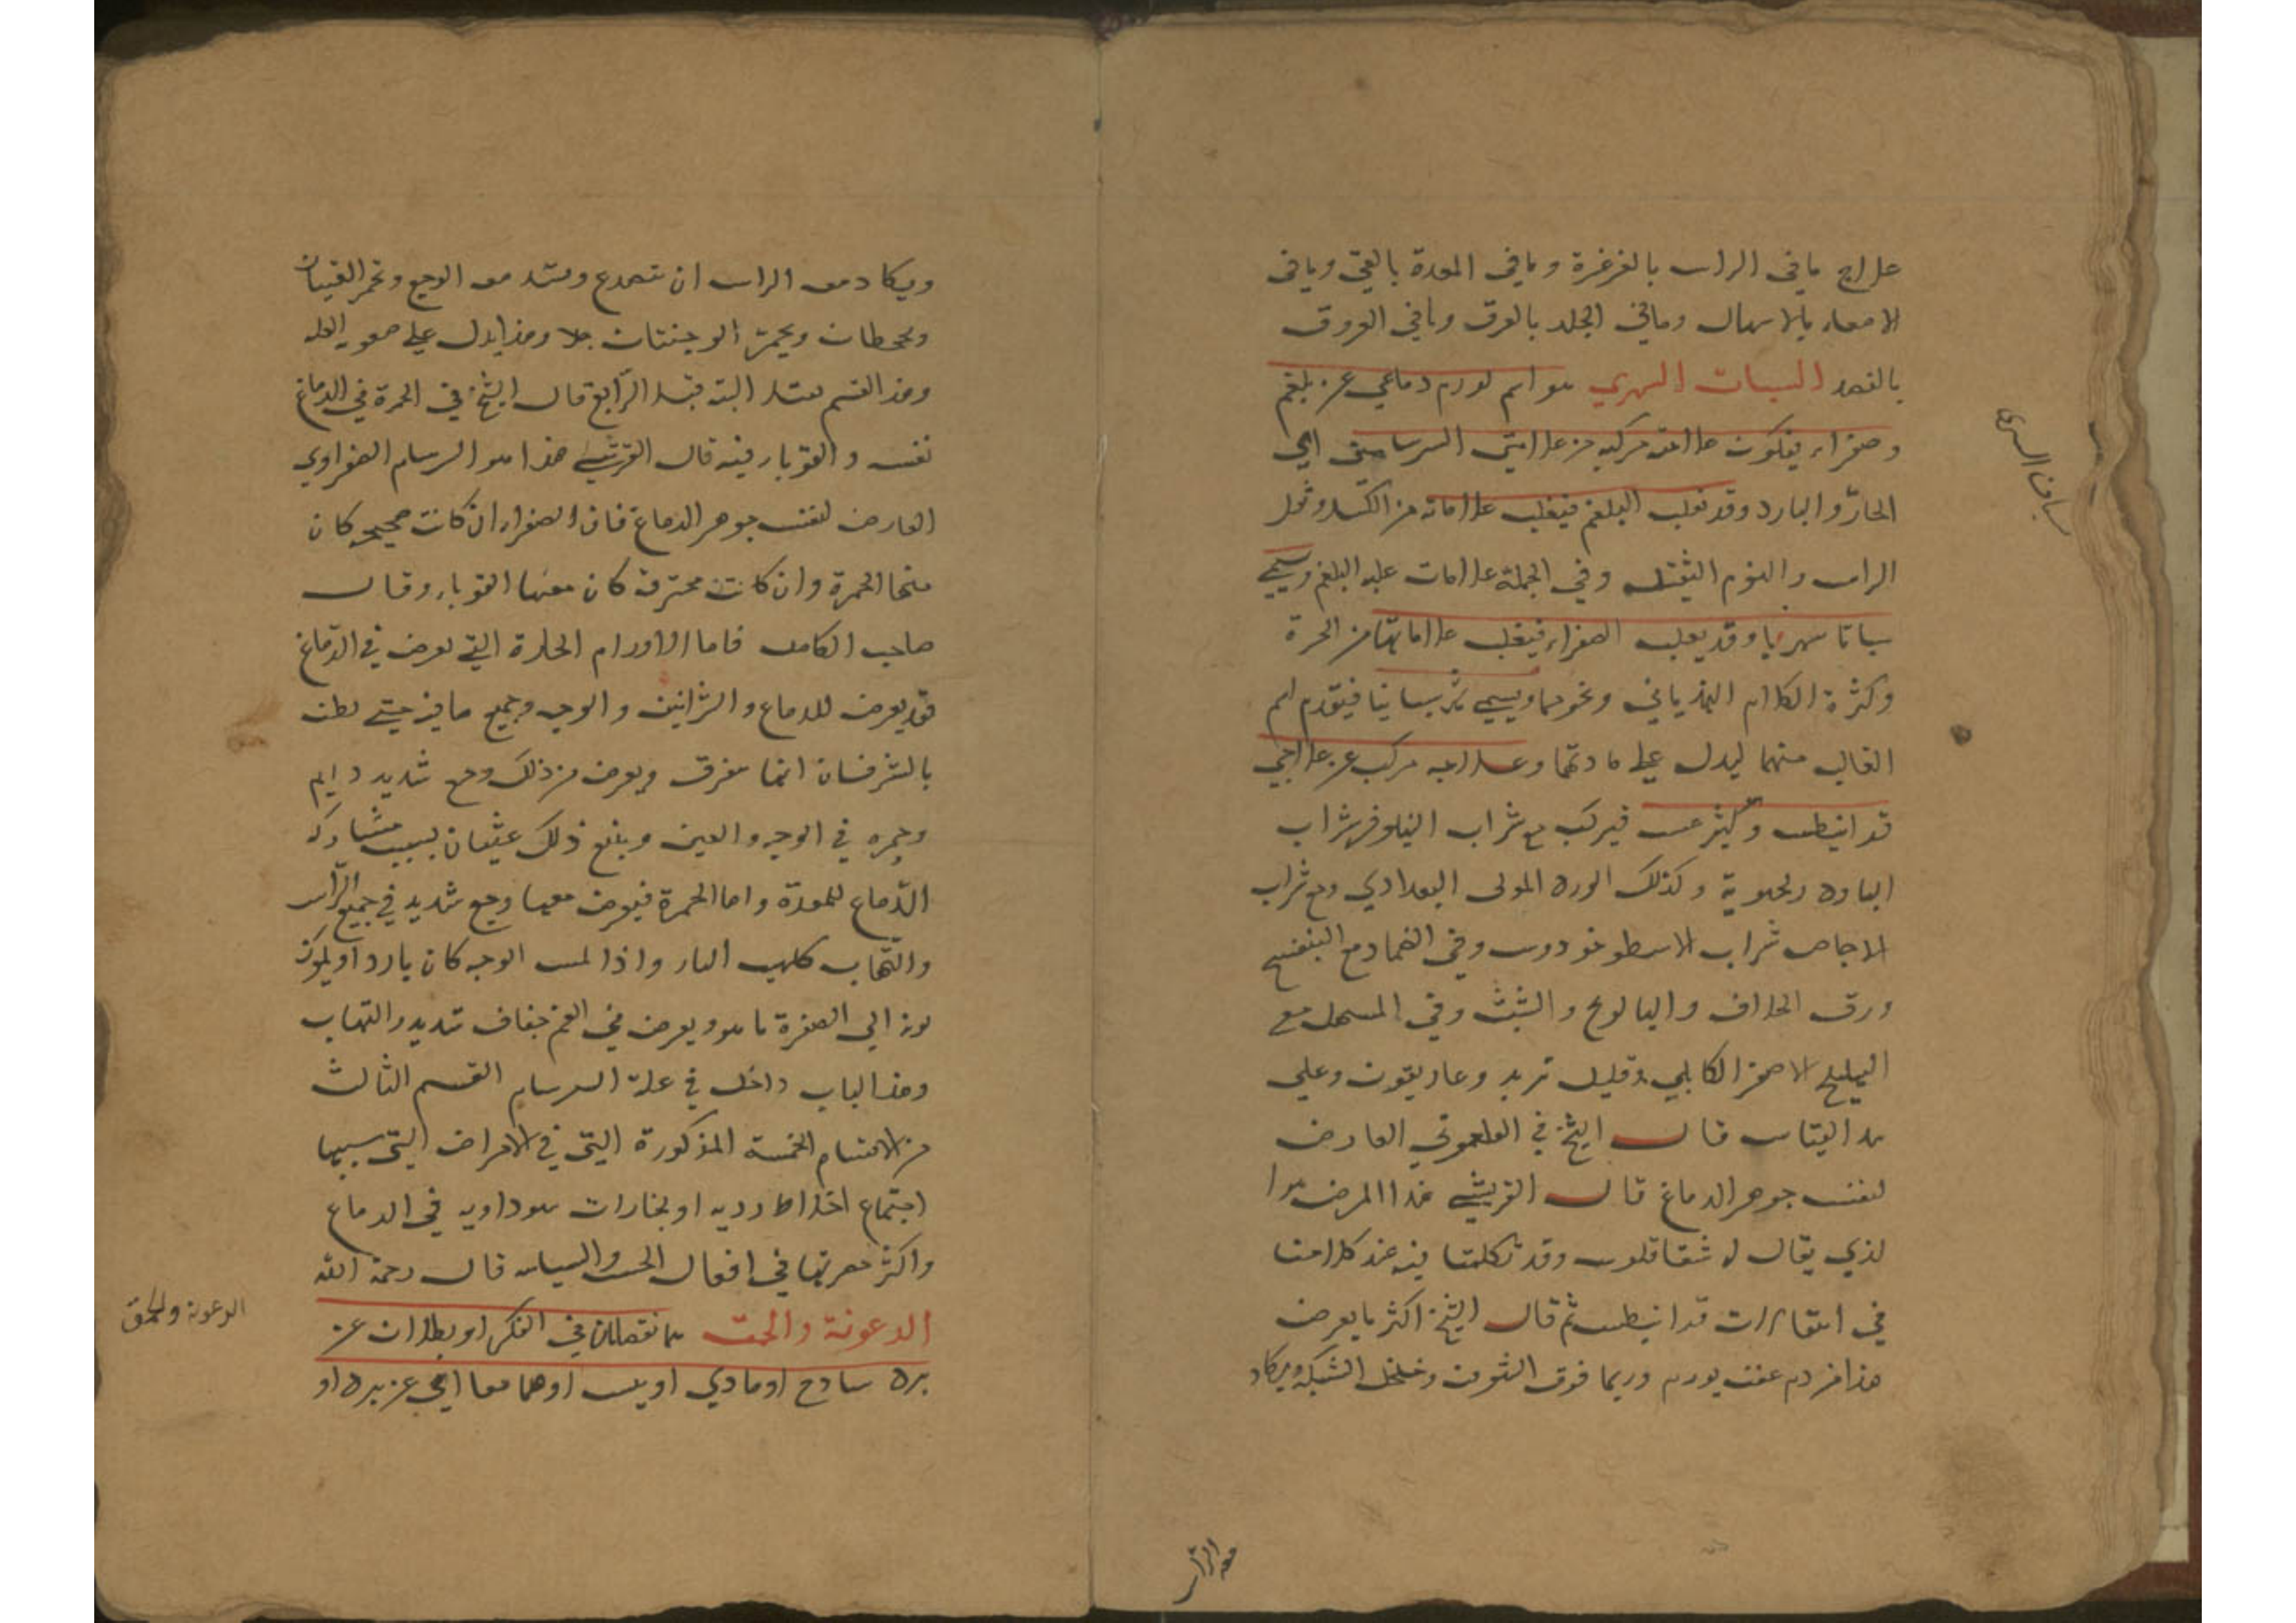 علاج مافي الراس بالغرغرة ومافي المعدة بالقي ومافي
الامعاء بالاسهال ومافي الجلد بالعرق ومافي العروق
بالفصد السبات السهري هو اسم لورم دماغي عن بلغم
وصفراء فيكون علامته مركبه من علامتي السرسامين اي
الحار والبارد وقد تغلب البلغم فيغلب علاماته من الكسل وثقل
الراس والنوم الثقيل وفي الجملة علامات غلبه البلغم ويسمي
سباتا سهريا وقد يغلب الصفراء فيغلب علاماتها من الحرة
وكثرة الكلام الهذياني ونحوهما ويسمي سهرا سباتيا فيتقدم اسم
الغالب منهما ليدل علي مادتهما وعلاجه مركب عن علاجي
قرانيطس وليثرغس فيركب مع شراب النيلوفر شراب
البادرنجبوية وكذلك الورد المولى البغدادي ومع شراب
الاجاص شراب الاسطوخودوس وفي الضماد مع البنفسج
ورق الخلاف والبابونج والشبث وفي المسهل مع
الهليلج الاصفر الكابلي وقليل تربد وغاريقون وعلي
هذا القياس قال الشيخ في الفلغموني العارض
لنفس جوهر الدماغ قال القرشي هذا المرض هو ا
لذي يقال له شقاقلوس وقد تكلمنا فيه عند كلامنا
في انتقالات قرانيطس ثم قال الشيخ اكثر ما يعرض
هذا من دم عفن يورم وربما فرق الشون وخلخل الشبكه ويكاد
سبات السهري
معه الراس
ويكاد معه الراس ان تتصدع وتشتد معه الوجع وتحمر العينان
وتجحظان ويحمر الوجنتان جدا وهذا يدل علي صعوبه العله
وهذا القسم يقتل البته قبل الرابع قال الشيخ في الحمرة في الدماغ
نفسه والقوباء فيه قال القرشي هذا هو السرسام الصفراوي
العارض لنفس جوهر الدماغ فان الصفراء ان كانت صحيحه كان
منها الحمرة وان كانت محترقة كان منها القوباء وقال
صاحب الكامل فاما الاورام الحارة التي تعرض في الدماغ
فقد يعرض للدماغ والشرايين والوجه وجميع ما فيه حتي يظن
بالشؤن انها تفرق ويعرض من ذلك وجع شديد دايم
وحمره في الوجه والعين ويتبع ذلك غثيان بسبب مشاركه
الدماغ للمعدة واما الحمرة فيعرض معها وجع شديد في جميع الراس
والتهاب كلهب النار واذا لمس الوجه كان باردا ويكون
لونه الي الصفرة ما هو ويعرض في الفم جفاف شديد والتهاب
وهذا الباب داخل في علة السرسام القسم الثالث
من الاقسام الخمسة المذكورة التي في الامراض التي سببها
اجتماع اخلاط رديه او بخارات سوداويه في الدماغ
واكثر مضرتها في افعال الحس والسياسه قال رحمة الله
الرعونة والحمق هما نقصان في الفكر او بطلان عن
برد ساذج او مادي او يبس او هما معا اي عن برد او
الرعونة والحمق